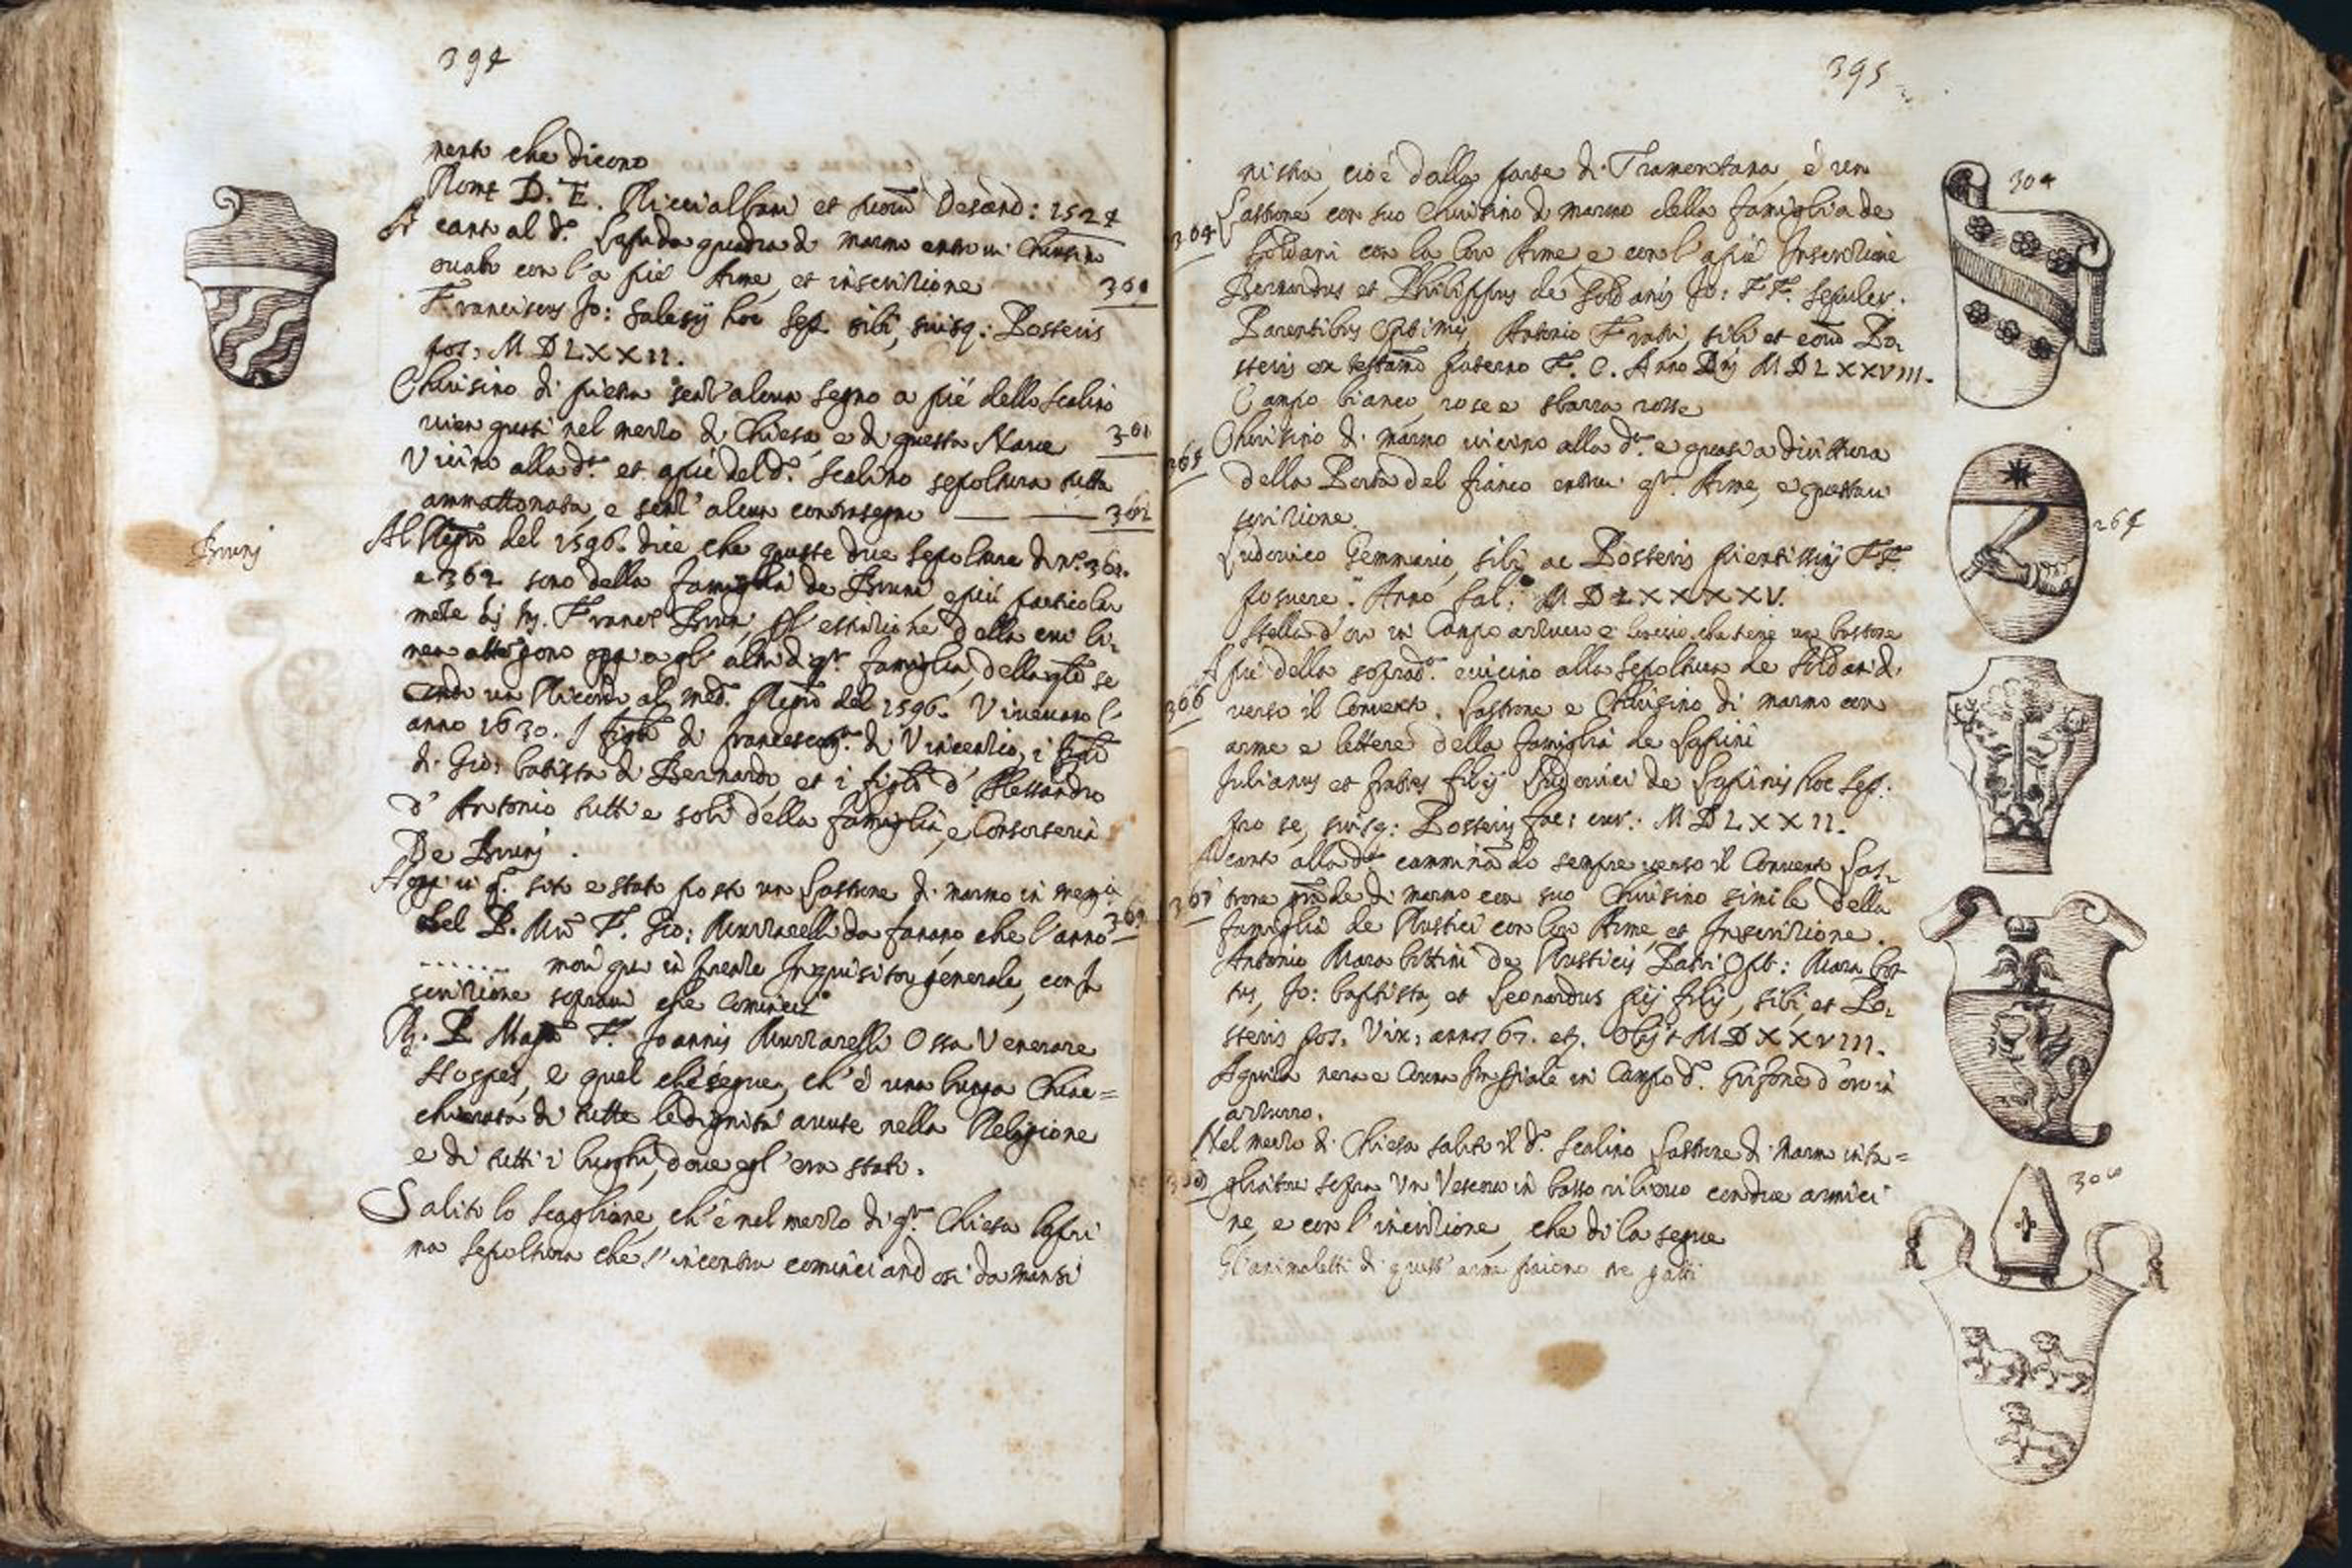 394
mento che dicono
D. E. Ricci albani et suor. Descend: 1524
A canto al d.º Lapida quadra di marmo entrovi Chiusino
ovale con l'a piè Arme, et inscrizione 360
Franciscus Jo: Salesij hoc Sep. sibi, suisq: Posteris
pos: MDLXXII.
Chiusino di pietra senz'alcun segno a piè dello scalino
vien quasi nel mezzo di Chiesa, e di questa Nave 361
Vicino alla d.ª et a piè del d.º Scalino sepoltura tutta
ammattonata, e senz'alcun contrasegno 362
Brunj
Al Regro del 1596. dice che queste due sepolture di N.º 361.
e 362 sono della famiglia de Bruni e più particolar
di Franc.º Bruni, estinzione della cui li-
nea oggi a gl'altri di q.ª famiglia, della
un Ricordo al med.º Regro del 1596. Vivevano l'
anno 1630. I figli di Francesco di Vincenzio, i figli
di Gio: batista di Bernardo, et i figli d'Alessandro
d'Antonio tutti e soli della famiglia, e Consorteria
De Brunj.
Oggi in q.º sito è stato posto un Lastrone di marmo in mem.ª
del P. Mro F. Gio: Muzzarelli da Fanano, che l'anno 363
....... morì qui in Firenze Inquisitore generale, con In
scrizione sopravi che comincia
R. P. Mag.º F. Joannis Muzzarelli Ossa Venerare
Hospes, e quel che segue, ch'è una lunga Chiac=
chierata di tutte le dignità avute nella Religione
e di tutti i luoghi, dove egl'era stato.
Salito lo Scaglione, ch'è nel mezzo di q.ª Chiesa la pri
ma sepoltura che s'incontra cominciandosi da mansi
395
nistra, cioè dalla parte di Tramontana, è un
364 Lastrone con suo Chiusino di marmo della famiglia de
Soldani con la loro Arme e con l'a piè Inscrizione
Bernardus et Philippus de Soldanis Jo: FF. Sepulcr.
Parentibus Optimis, Antonio Fratri, sibi et eorum Po-
steris ex testam.º paterno F. C. Anno Dnj MDLXXVIII.
Campo bianco, rose e sbarra rosse
304
365 Chiusino di marmo vicino alla d.ª e quasi a dirittura
della Porta del fianco entrovi q.ª Arme, e questa in
scrizione.
Ludovico Gemmario, sibi ac Posteris pientissimj FF.
posuere. Anno Sal: MDLXXXXV.
Stella d'oro in Campo azzurro e braccio, che tiene un bastone
264
366 A piè della soprad.ª e vicino alla sepoltura de Soldani di
verso il Convento, Lastrone e Chiusino di marmo con
arme e lettere della famiglia de Lapini
Julianus et fratres filij Ludovici de Lapinis hoc Sep:
pro se, suisq: Posteris fac: cur: MDLXXII.
A canto alla d.ª camminando sempre verso il Convento Las-
367 trone grande di marmo con suo Chiusino simile della
famiglia de Rustici con loro Arme, et Inscrizione.
Antonio Mara bottini de Rusticis Patri Opt: Mara bot
tus, Jo: baptista, et Leonardus pij filij, sibi, et Po-
steris pos. Vix: anno 67. Obijt MDXXVIII.
Aquila nera e Corona Imperiale in Campo d. Grifone d'oro in
azzurro.
Nel mezzo di Chiesa salito il d.º Scalino Lastrone di marmo inta=
gliatovi sopra un Vescovo in basso rilievo con due armici
ne, e con l'inscrizione, che di la segue
Gl'animaletti di quest'arma paiono tre gatti